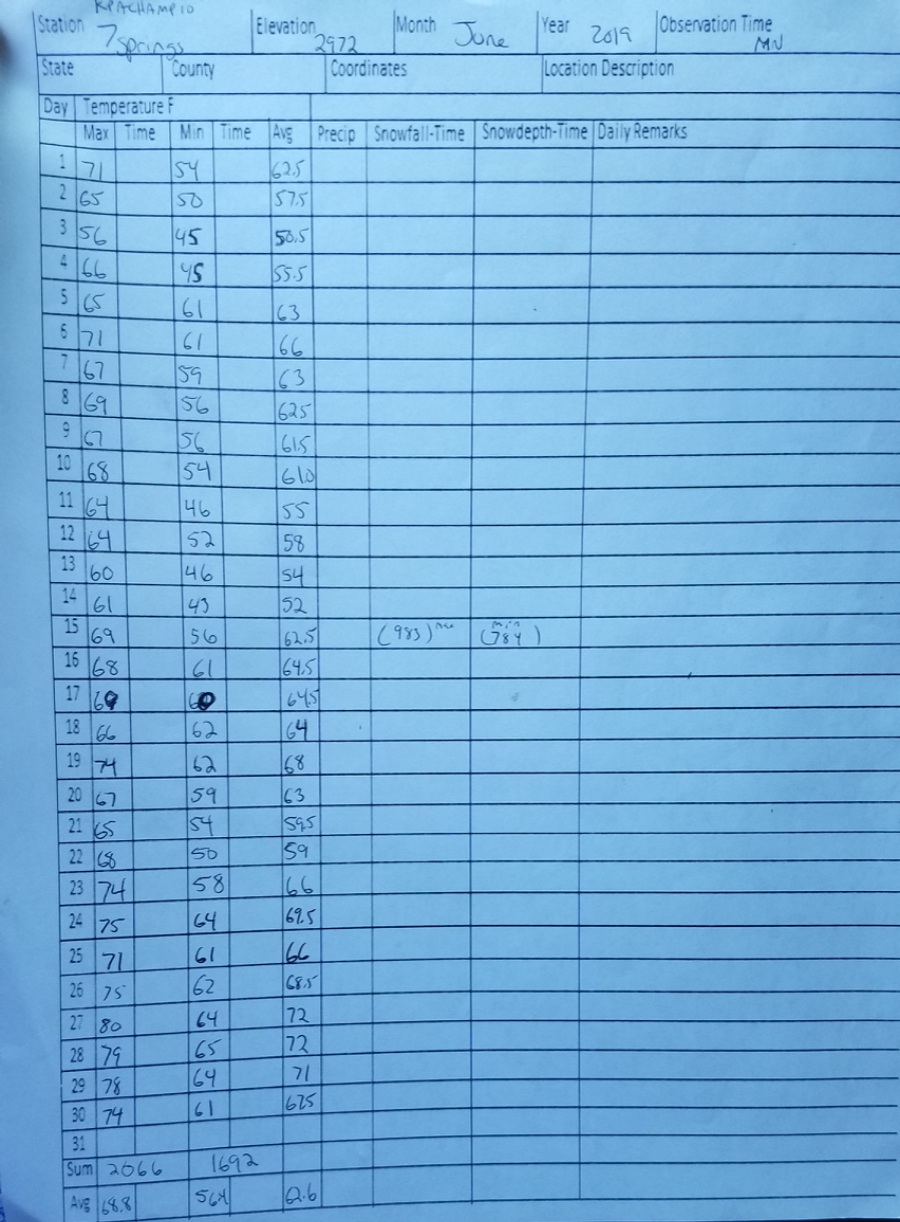 KPACHAMP10
Station 7 Springs Elevation 2972 Month June Year 2019 Observation Time MN
State County Coordinates Location Description
Day Temperature F
Max Time Min Time Avg Precip Snowfall-Time Snowdepth-Time Daily Remarks
1 71 54 62.5
2 65 50 57.5
3 56 45 50.5
4 66 45 55.5
5 65 61 63
6 71 61 66
7 67 59 63
8 69 56 625
9 67 56 61.5
10 68 54 61.0
11 64 46 55
12 64 52 58
13 60 46 54
14 61 43 52
15 69 56 62.5 (983) (784) min
16 68 61 64.5
17 69 60 64.5
18 66 62 64
19 74 62 68
20 67 59 63
21 65 54 59.5
22 68 50 59
23 74 58 66
24 75 64 69.5
25 71 61 66
26 75 62 68.5
27 80 64 72
28 79 65 72
29 78 64 71
30 74 61 625
31
Sum 2066 1692
Avg 68.8 56.4 62.6